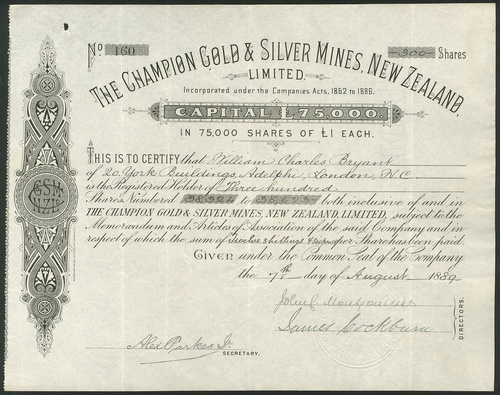 No 160 300 Shares
THE CHAMPION GOLD & SILVER MINES, NEW ZEALAND,
LIMITED.
Incorporated under the Companies Acts, 1862 to 1886.
CAPITAL £75,000.
IN 75,000 SHARES OF £1 EACH.
THIS IS TO CERTIFY that William Charles Bryant
of 20, York Buildings, Adelphi, London, W.C.
is the Registered Holder of Three hundred
Shares, Numbered to both inclusive of and in
THE CHAMPION GOLD & SILVER MINES, NEW ZEALAND, LIMITED, subject to the
Memorandum and Articles of Association of the said Company and in
respect of which the sum of Twelve shillings & sixpence per Share has been paid.
GIVEN under the Common Seal of the Company
the 7th day of August 1889
John
James Cockburn
DIRECTORS.
Alex Parkes Jr.
SECRETARY.